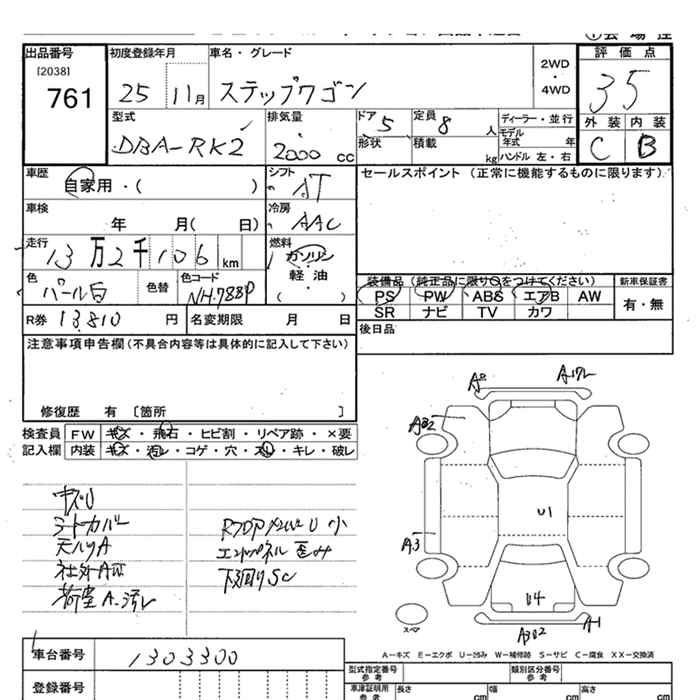 出品番号
[2038]
761
初度登録年月
25 11月
車名・グレード
ステップワゴン
2WD
・
4WD
評価点
35
外装 内装
C B
型式
DBA-RK2
排気量
2000 cc
ドア 5
形状
定員 8 人
積載 kg
ディーラー・並行
モデル年式 年
ハンドル 左・右
車歴
自家用・( )
シフト
AT
セールスポイント (正常に機能するものに限ります)
車検
年 月( 日)
冷房
AAC
走行
13万2千106 km
燃料
ガソリン
軽・油
( ・ )
色
パール白
色替
色コード
NH-788P
装備品 (純正品に限り○をつけてください)
新車保証書
PS PW ABS エアB AW
SR ナビ TV カワ
有・無
R券 13,810 円
名変期限 月 日
後日品
注意事項申告欄 (不具合内容等は具体的に記入して下さい)
修復歴 有 [箇所 ]
検査員 FW キズ・飛石・ヒビ割・リペア跡・×要
記入欄 内装 キズ・汚レ・コゲ・穴・スレ・キレ・破レ
シートカバー
天ハリA
社外AW
荷室A・汚レ
エンドパネル歪み
下廻りSC
A3
U1
U4
A-1
スペア
A-キズ E-エクボ U-凹み W-補修跡 S-サビ C-腐食 XX-交換済
車台番号
1303300
登録番号
型式指定番号
参考
類別区分番号
参考
車庫証明用
参考
長さ cm
幅 cm
高さ cm